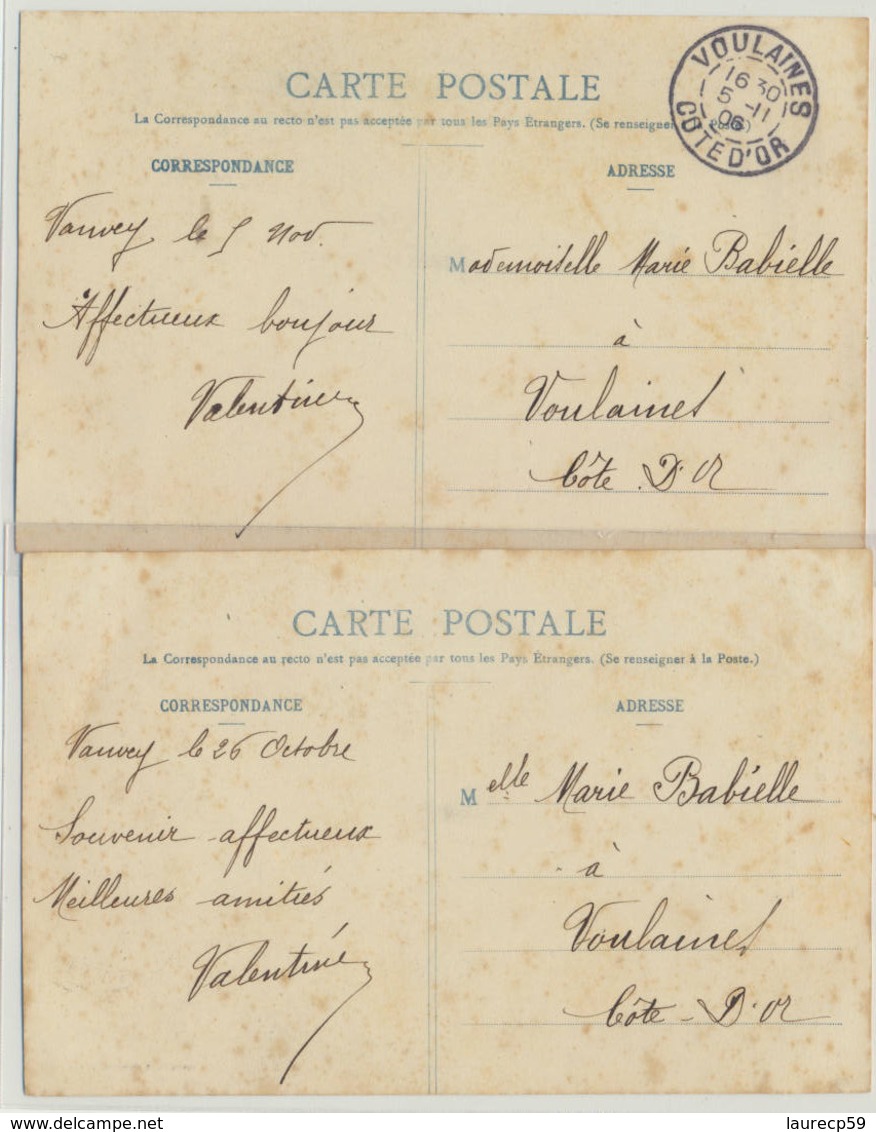 CARTE POSTALE
VOULAINES
16 30
5 -11
06
COTE D'OR
La Correspondance au recto n'est pas acceptée par tous les Pays Étrangers. (Se renseigner Poste)
CORRESPONDANCE
Vanvey le 5 Nov.
Affectueux boujour
Valentine
ADRESSE
Mademoiselle Marie Babielle
à
Voulaines
Côte D'Or
CARTE POSTALE
La Correspondance au recto n'est pas acceptée par tous les Pays Étrangers. (Se renseigner à la Poste.)
CORRESPONDANCE
Vanvey le 26 Octobre
Souvenir affectueux
Meilleures amitiés
Valentine
ADRESSE
Melle Marie Babielle
à
Voulaines
Côte - D'Or
laurecp59